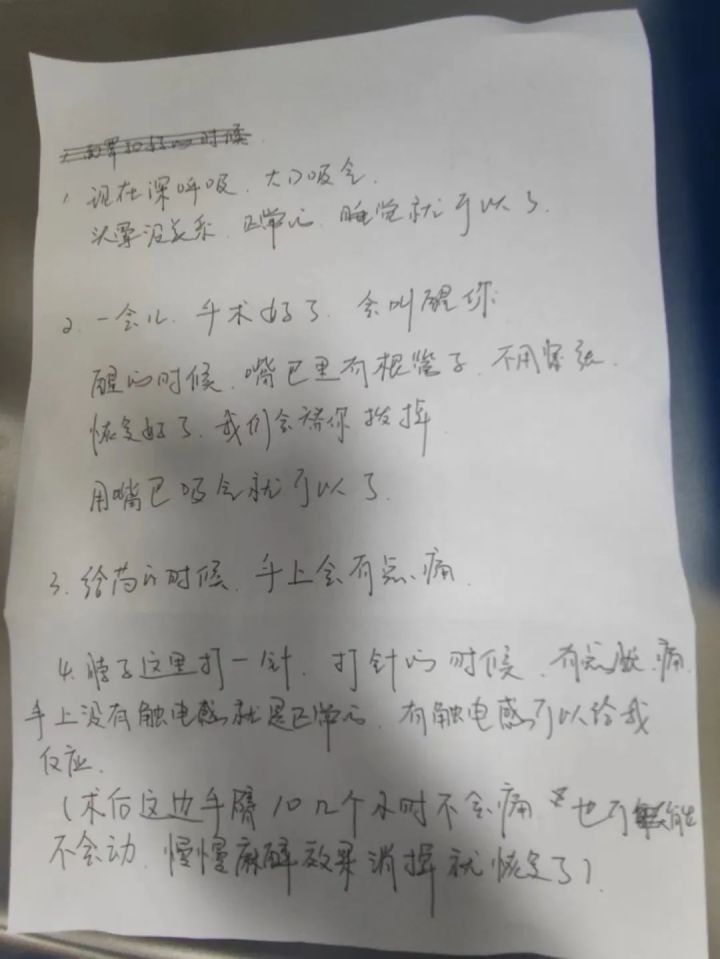 1、现在深呼吸、大口吸气.
头晕没关系、正常的、睡觉就可以了.
2、一会儿、手术好了、会叫醒你
醒的时候、嘴巴里有根管子、不用紧张.
恢复好了、我们会帮你拨掉
用嘴巴吸气就可以了.
3、给药的时候、手上会有点痛.
4、脖子这里打一针、打针的时候、有点胀痛.
手上没有触电感就是正常的、有触电感可以给我
反应.
(术后这边手臂10几个小时不会痛 也可能
不会动、慢慢麻醉效果消掉就恢复了)